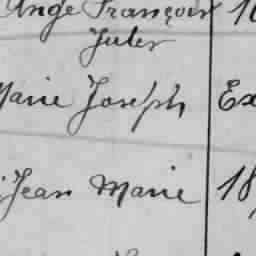 Ange François
Jules
Marie Joseph Ex
Jean Marie 18